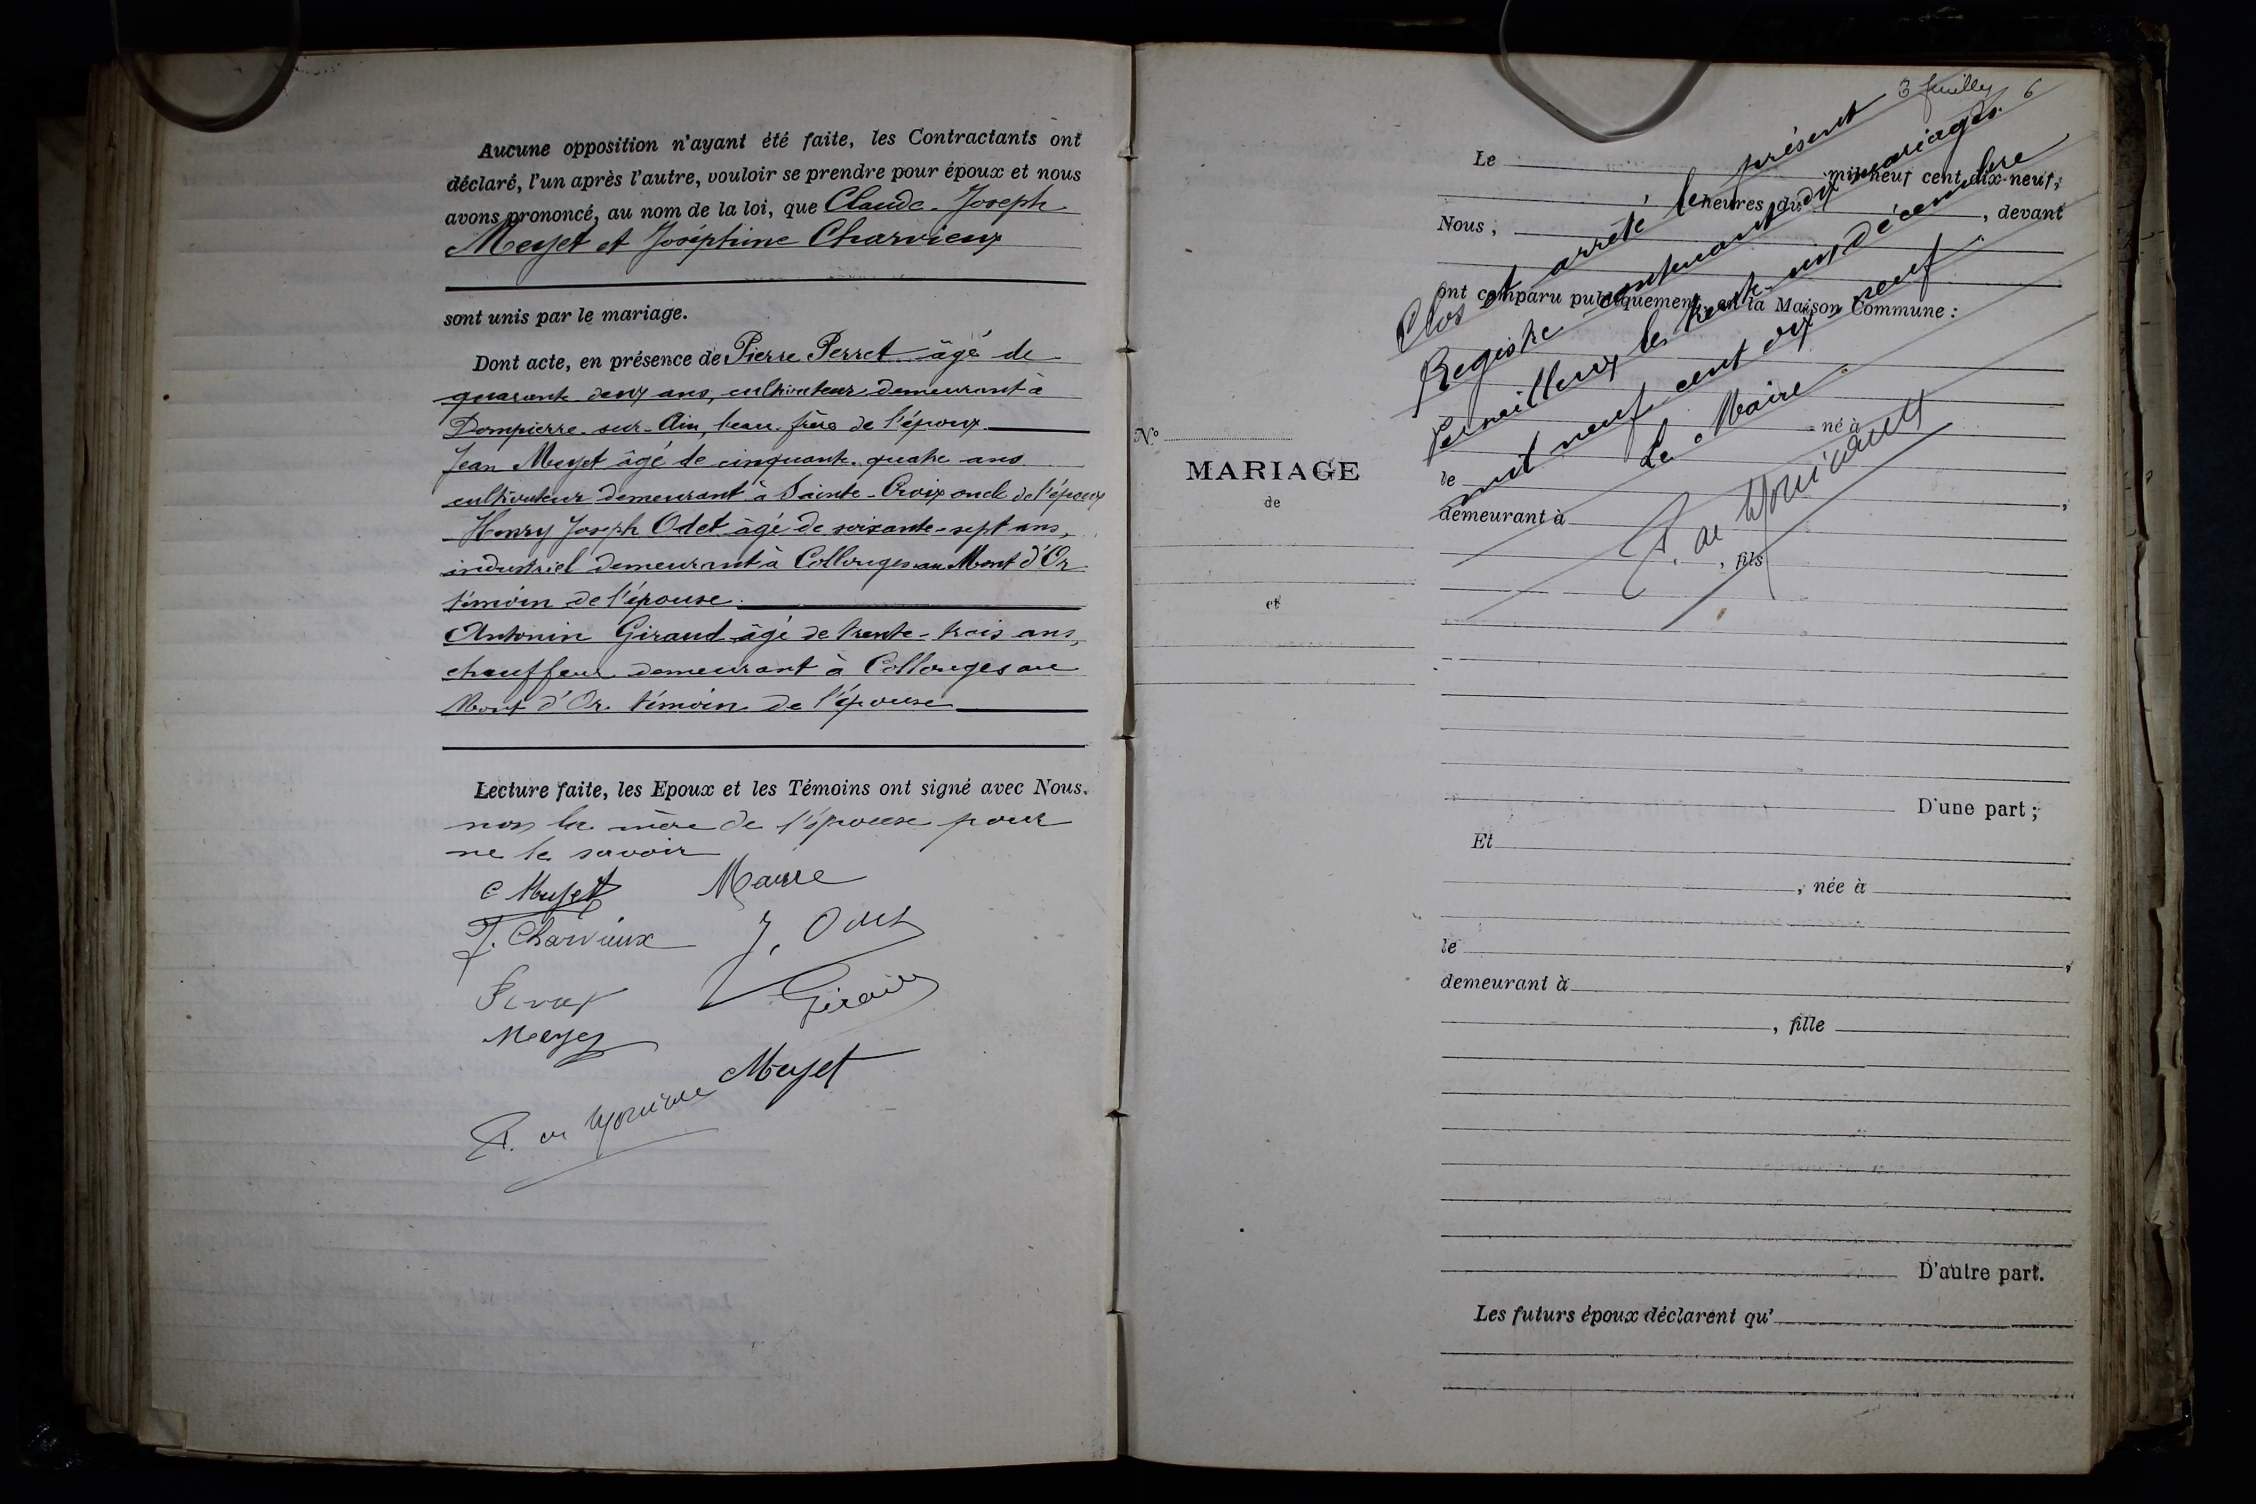 Aucune opposition n'ayant été faite, les Contractants ont
déclaré, l'un après l'autre, vouloir se prendre pour époux et nous
avons prononcé, au nom de la loi, que Claude-Joseph
Meyet et Joséphine Charvieux
sont unis par le mariage.
Dont acte, en présence de Pierre Perret âgé de
quarante deux ans, cultivateur demeurant à
Dompierre-sur-Ain, beau-frère de l'époux
Jean Meyet âgé de cinquante-quatre ans
cultivateur demeurant à Sainte-Croix oncle de l'époux
Henry Joseph Odet âgé de soixante-sept ans,
industriel demeurant à Collonges au Mont d'Or
témoin de l'épouse.
Antonin Giraud âgé de trente-trois ans,
chauffeur demeurant à Collonges au
Mont d'Or témoin de l'épouse
Lecture faite, les Epoux et les Témoins ont signé avec Nous.
non la mère de l'épouse pour
ne le savoir
C Meyet
J. Charvieux
J. Odet
Giraud
Meyet
3 feuillets 6
Le
mil neuf cent dix-neuf,
heures du
, devant
Nous,
ont comparu publiquement en la Maison Commune :
Clos et arrêté le présent
Registre contenant dix mariages.
le trente-un décembre
mil neuf cent dix neuf.
Le Maire
né à
le
,
demeurant à
, fils
N°
MARIAGE
de
et
D'une part ;
Et
, née à
le
,
demeurant à
, fille
D'autre part.
Les futurs époux déclarent qu'